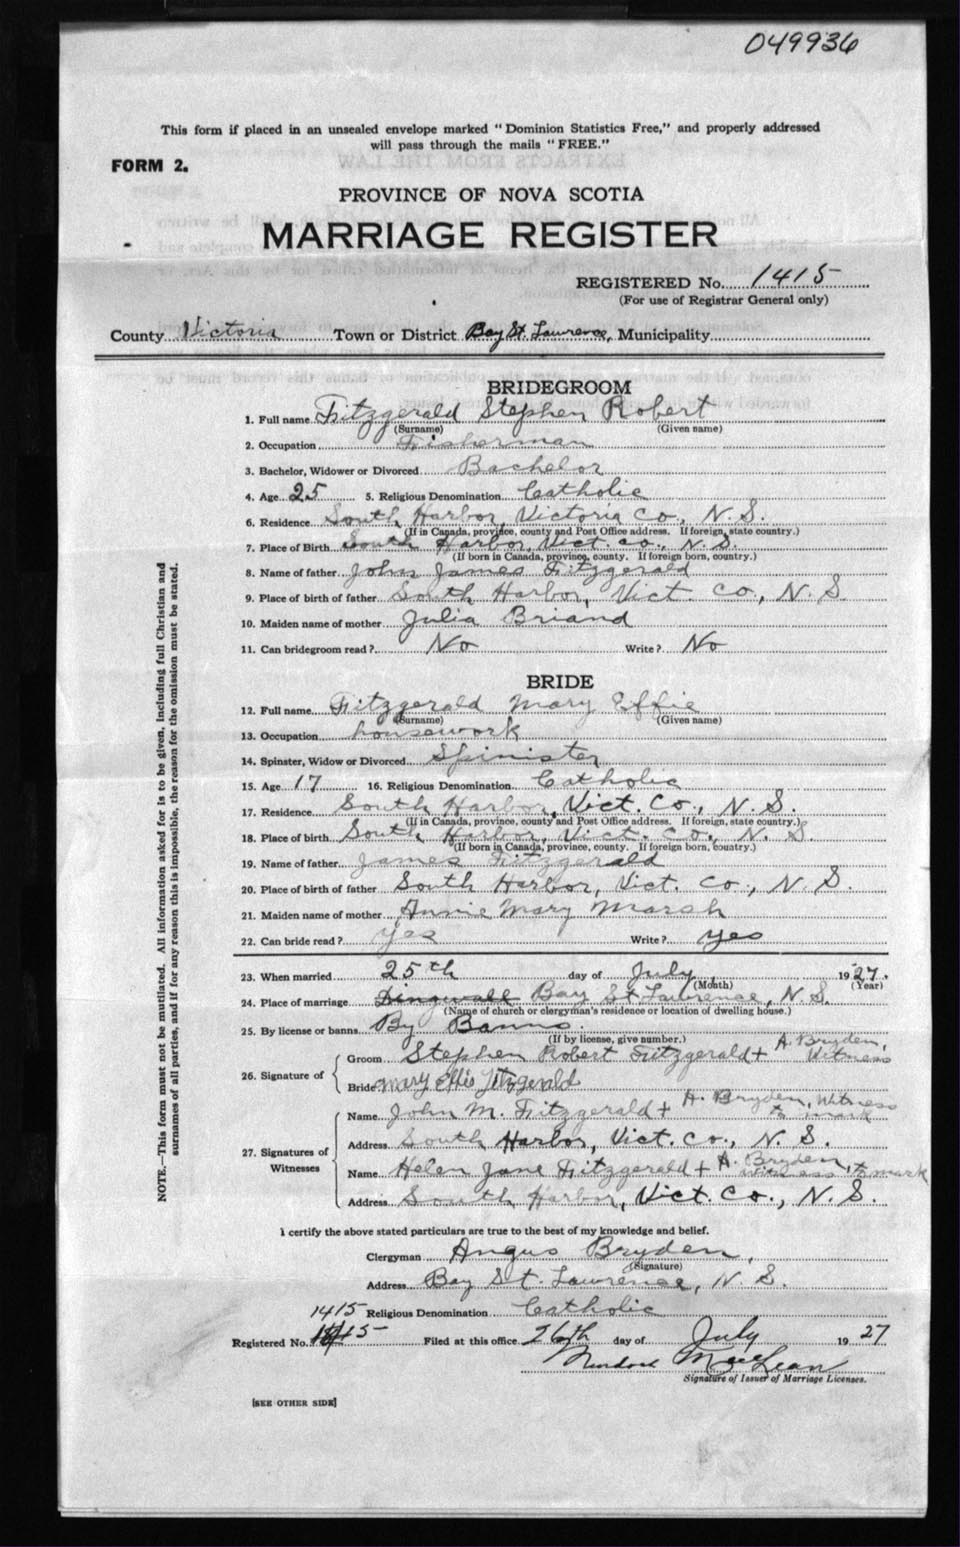 049936
This form if placed in an unsealed envelope marked "Dominion Statistics Free," and properly addressed
will pass through the mails "FREE."
FORM 2.
PROVINCE OF NOVA SCOTIA
MARRIAGE REGISTER
REGISTERED No. 1415
(For use of Registrar General only)
County Victoria Town or District Bay St. Lawrence, Municipality
BRIDEGROOM
1. Full name Fitzgerald Stephen Robert
(Surname) (Given name)
2. Occupation Fisherman
3. Bachelor, Widower or Divorced Bachelor
4. Age 25 5. Religious Denomination Catholic
6. Residence South Harbor, Victoria Co., N. S.
(If in Canada, province, county and Post Office address. If foreign, state country.)
7. Place of Birth South Harbor, Vict. Co., N. S.
(If born in Canada, province, county. If foreign born, country.)
8. Name of father John James Fitzgerald
9. Place of birth of father South Harbor, Vict. Co., N. S.
10. Maiden name of mother Julia Briand
11. Can bridegroom read? No Write? No
BRIDE
12. Full name Fitzgerald Mary Effie
(Surname) (Given name)
13. Occupation housework
14. Spinster, Widow or Divorced Spinister
15. Age 17 16. Religious Denomination Catholic
17. Residence South Harbor, Vict. Co., N. S.
(If in Canada, province, county and Post Office address. If foreign, state country.)
18. Place of birth South Harbor, Vict. Co., N. S.
(If born in Canada, province, county. If foreign born, country.)
19. Name of father James Fitzgerald
20. Place of birth of father South Harbor, Vict. Co., N. S.
21. Maiden name of mother Annie Mary Marsh
22. Can bride read? yes Write? yes
23. When married 25th day of July, 1927.
(Month) (Year)
24. Place of marriage Dingwall Bay St Lawrence, N. S.
(Name of church or clergyman's residence or location of dwelling house.)
25. By license or banns By Banns.
(If by license, give number.)
26. Signature of
Groom Stephen Robert Fitzgerald + A. Bryden, Witness
Bride Mary Effie Fitzgerald
27. Signatures of Witnesses
Name John M. Fitzgerald + A. Bryden, Witness to mark
Address South Harbor, Vict. Co., N. S.
Name Helen Jane Fitzgerald + A. Bryden, Witness to mark
Address South Harbor, Vict. Co., N. S.
I certify the above stated particulars are true to the best of my knowledge and belief.
Clergyman Angus Bryden,
(Signature)
Address Bay St. Lawrence, N. S.
1415 Religious Denomination Catholic
Registered No. 1415 Filed at this office 26th day of July 1927
Murdock MacLean
Signature of Issuer of Marriage Licenses.
[SEE OTHER SIDE]
NOTE.—This form must not be mutilated. All information asked for is to be given, including full Christian and
surnames of all parties, and if for any reason this is impossible, the reason for the omission must be stated.